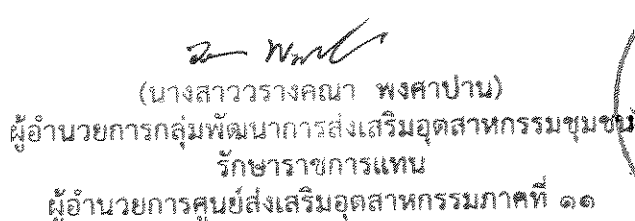 (นางสาววรางคณา พงศาปาน)
ผู้อำนวยการกลุ่มพัฒนาการส่งเสริมอุตสาหกรรมชุมชน
รักษาราชการแทน
ผู้อำนวยการศูนย์ส่งเสริมอุตสาหกรรมภาคที่ ๑๑